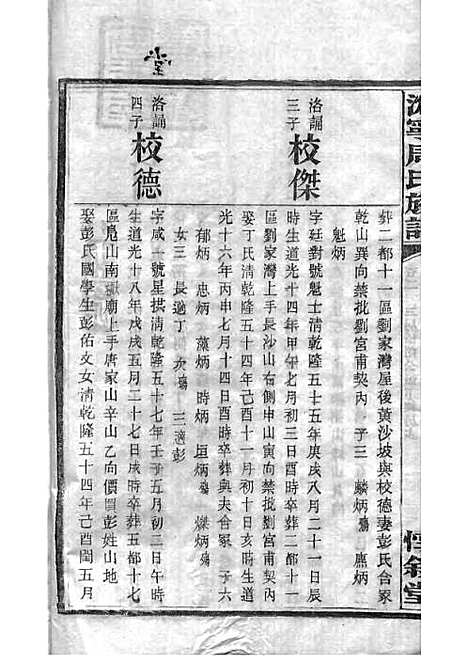 堂
葬二都十一區劉家灣屋後黃沙坡與校德妻彭氏合冢
乾山巽向禁批劉宮甫契內 子三 麟炳殤 應炳
魁炳
洛誦三子
校傑
字廷對號魁士清乾隆五十五年庚戌八月二十一日辰
時生道光十四年甲午七月初三日酉時卒葬二都十一
區劉家灣上手長沙山右側申山寅向禁批劉宮甫契內
娶丁氏清乾隆五十四年己酉十一月初三日戌時生道
光十六年丙申七月十四日酉時卒葬與夫合冢 子六
郁炳 忠炳 藻炳 時炳 垣炳殤 燦炳殤
女三 長適丁 次殤 三適彭
洛誦四子
校德
字咸一號星拱清乾隆五十七年壬子五月初二日午時
生道光十八年戊戌五月二十七日戌時卒葬五都十七
區鳧山南嶽廟上手唐家山辛山乙向價買彭姓山地
娶彭氏國學生彭佑文女清乾隆五十四年己酉閏五月
寧周氏族譜
惇敘堂